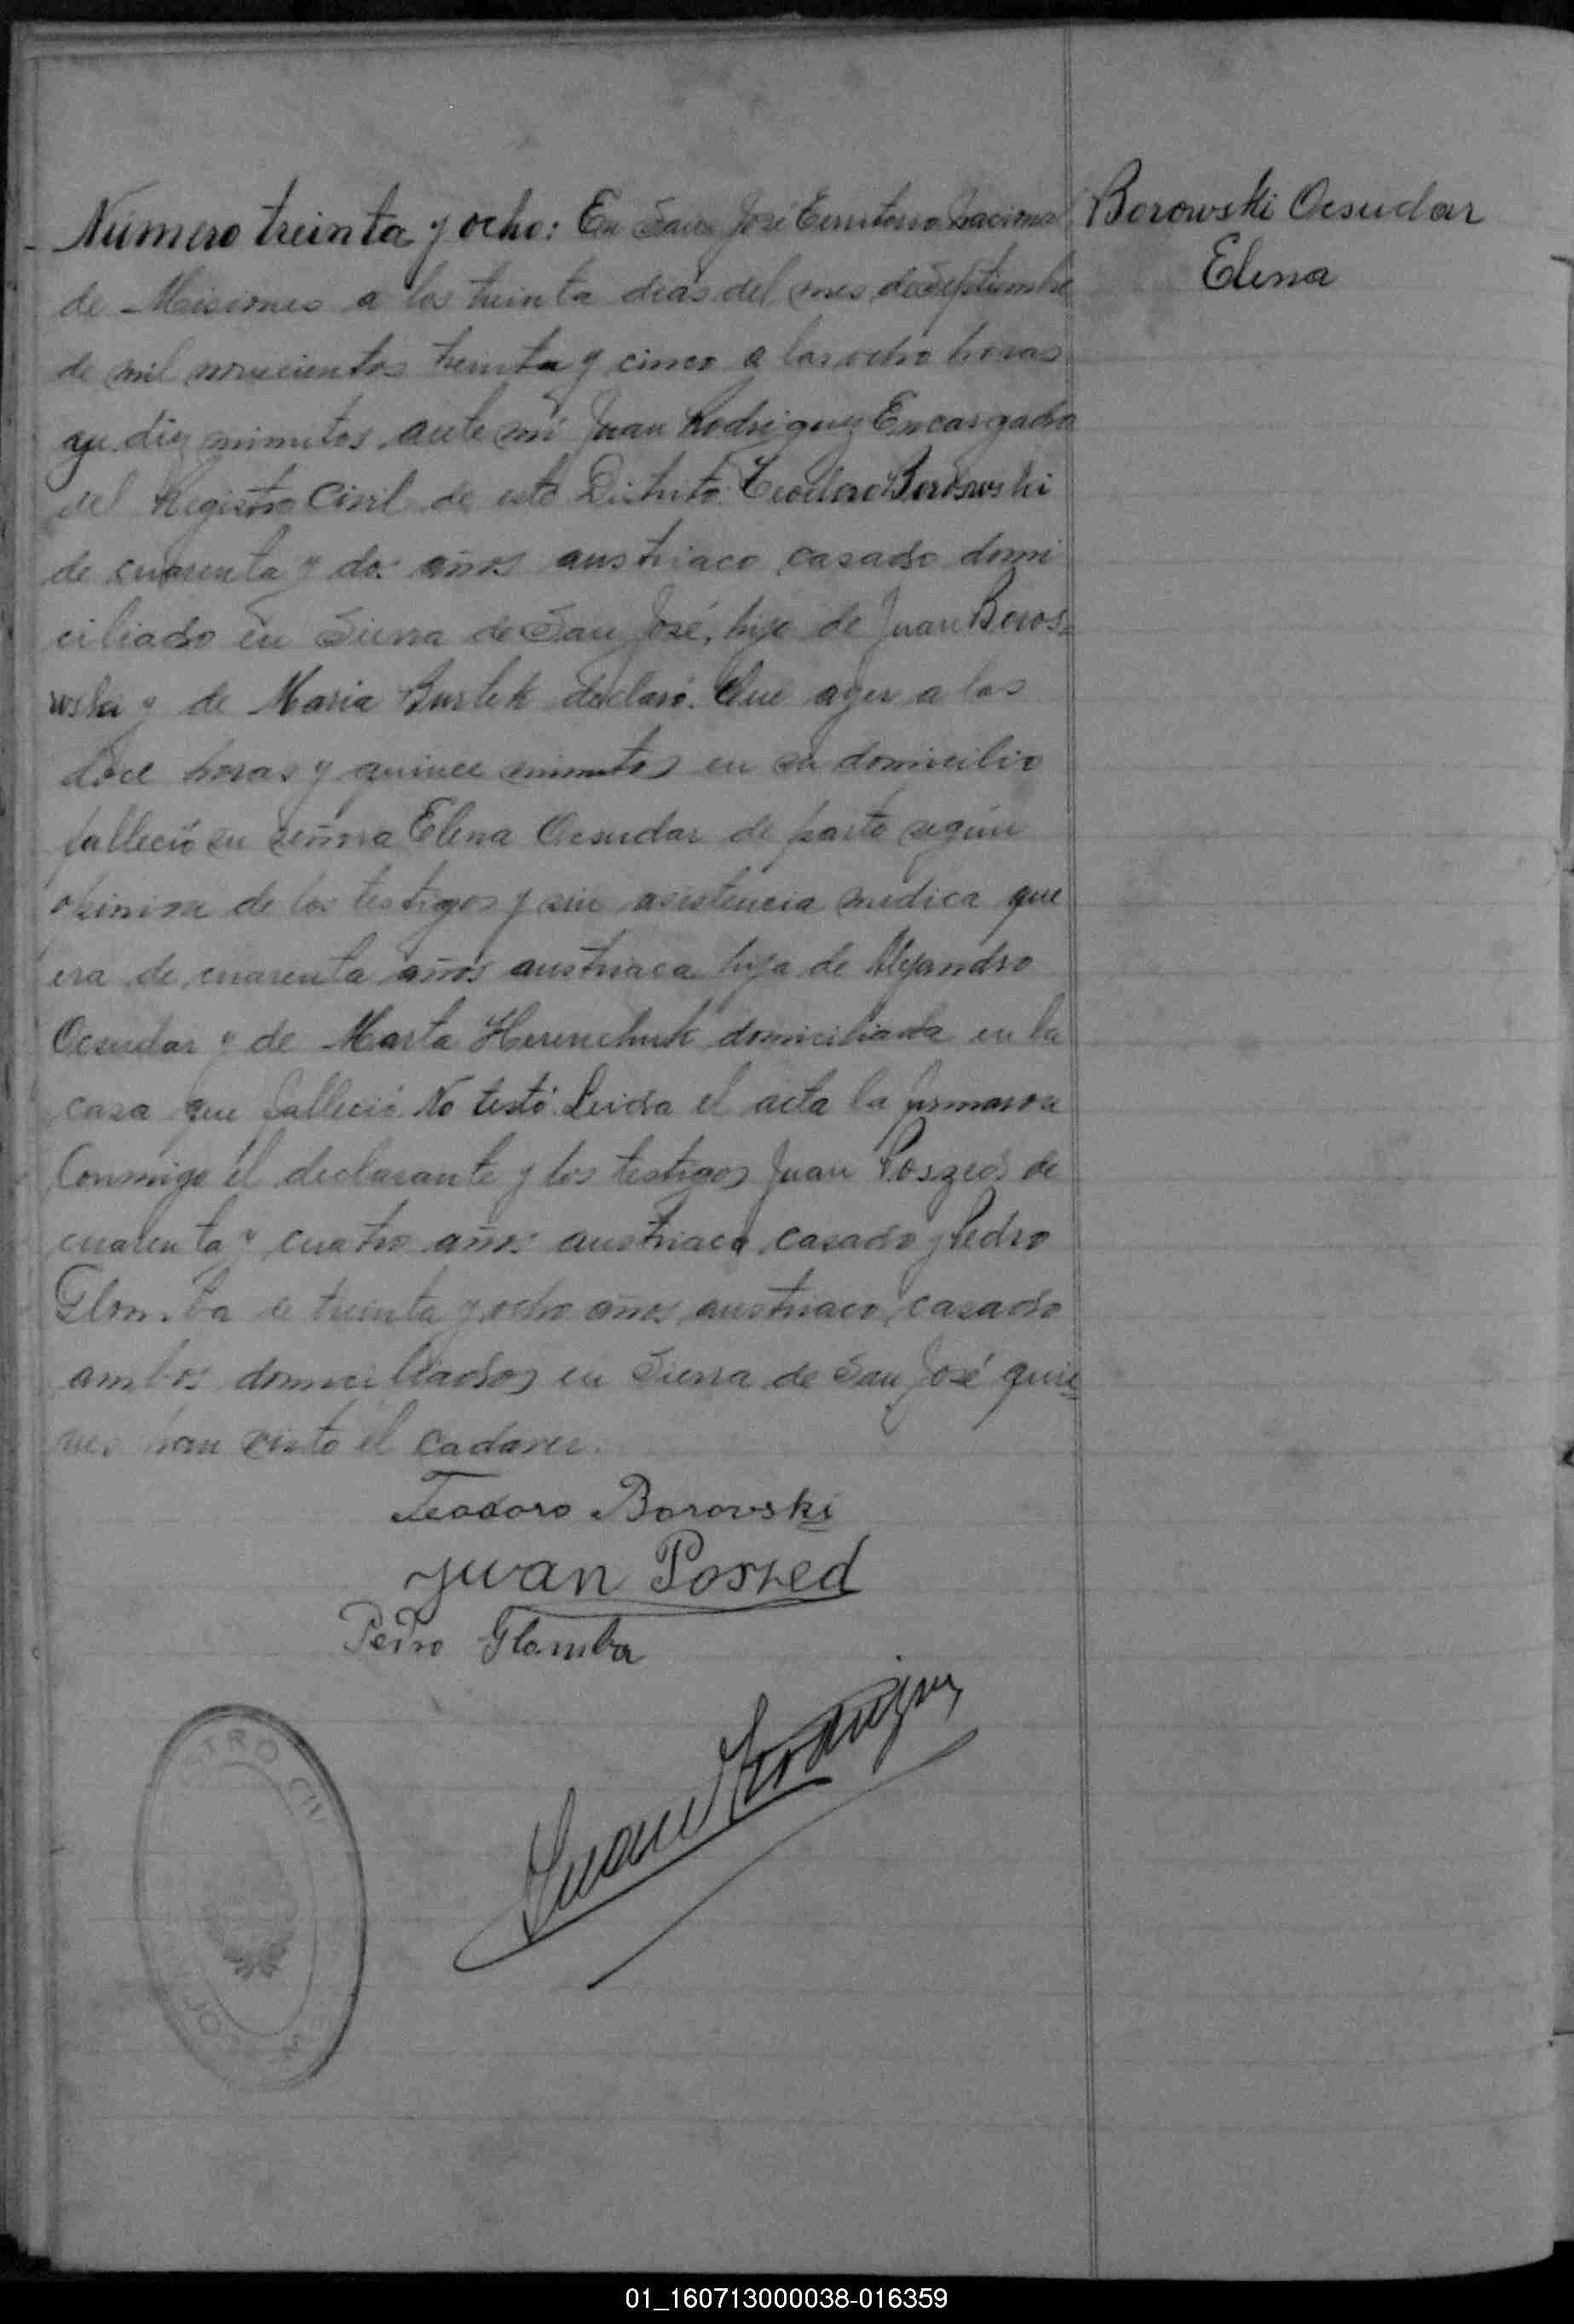 Número treinta y ocho: En San José Territorio Nacional
Borowski Ocsudar
Elena
de Misiones a los treinta dias del mes de Septiembre
de mil novecientos treinta y cinco a las ocho horas
diez minutos ante mi Juan Rodriguez Encargado
del Registro Civil de este Distrito. Teodoro Borowski
de cuarenta y dos años austriaco casado domi
ciliado en Sierra de San José, hijo de Juan Boros=
y de Maria Burtek declaró. Que ayer a las
doce horas y quince minutos en su domicilio
falleció su señora Elena Ocsudar de parto según
opinion de los testigos y sin asistencia medica que
era de cuarenta años austriaca hija de Alejandro
Ocsudar y de Marta Herenchuk domiciliada en la
casa que falleció No testó. Leida el acta la firmaron
Conmigo el declarante y los testigos Juan Poszed de
cuarenta y cuatro años austriaco casado y Pedro
Glomba de treinta y ocho años austriaco, casado
ambos domiciliados en Sierra de San José quie
nes han visto el cadaver.
Teodoro Borovski
Juan Poszed
Pedro Glomba
Juan Rodriguez
STRO CIV
JO
01_160713000038-016359